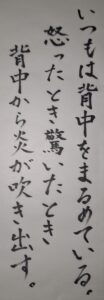 いつもは背中をまるめている。
怒ったとき驚いたとき
背中から炎が吹き出す。